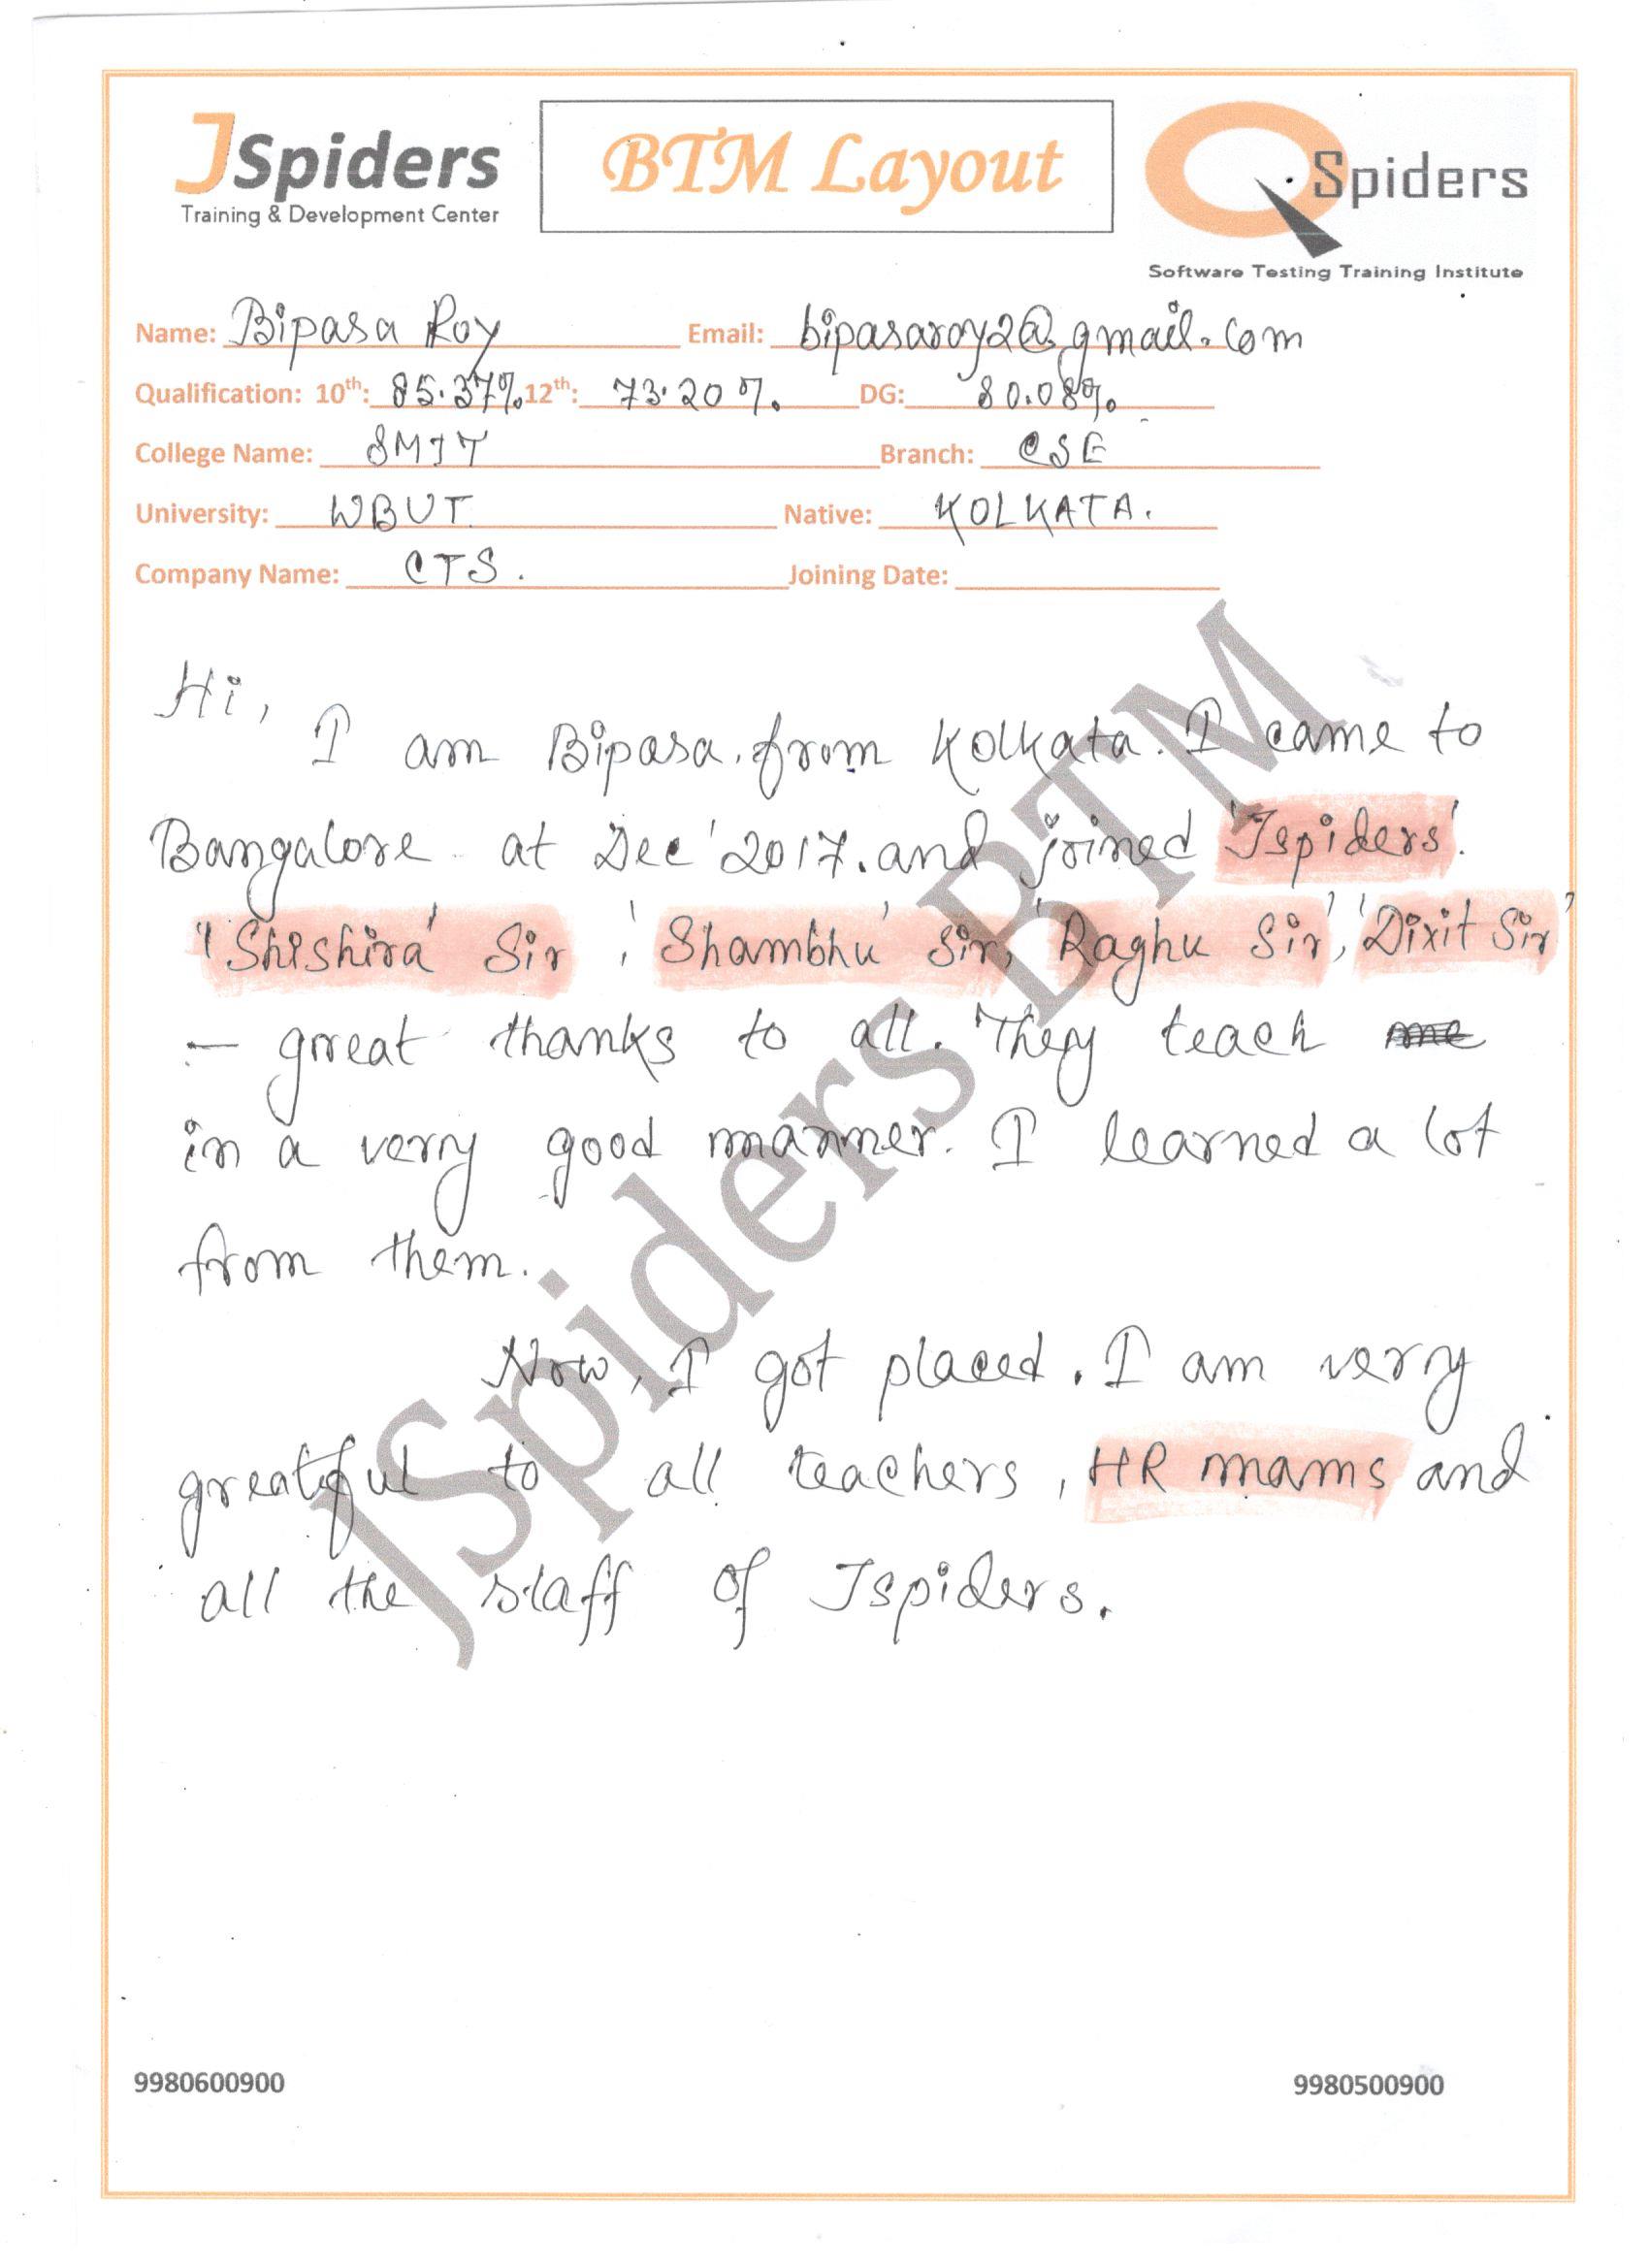 JSpiders
Training & Development Center
BTM Layout
QSpiders
Software Testing Training Institute
Name: Bipasa Roy Email: bipasaroy2@gmail.com
Qualification: 10th: 85.37% 12th: 73.20% DG: 80.08%
College Name: SMIT Branch: CSE
University: WBUT Native: KOLKATA.
Company Name: CTS. Joining Date:
Hi,
I am Bipasa. from Kolkata. I came to
Bangalore at Dec '2017. and joined 'Jspiders'.
'Shishira' Sir, 'Shambhu' Sir, 'Raghu Sir', 'Dixit Sir'
— great thanks to all. They teach me
in a very good manner. I learned a lot
from them.
Now, I got placed. I am very
greatful to all teachers, HR mams and
all the staff of Jspiders.
JSpiders BTM
9980600900 9980500900